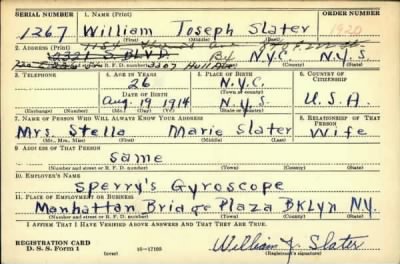 SERIAL NUMBER 1. NAME (Print) ORDER NUMBER
1267 William Joseph Slater 1920
(First) (Middle) (Last)
2. ADDRESS (Print)
BLVD N.Y.C. N.Y.S.
(Number and street or R. F. D. number) (Town) (County) (State)
3. TELEPHONE 4. AGE IN YEARS 5. PLACE OF BIRTH 6. COUNTRY OF CITIZENSHIP
26 N.Y.C.
(Town or county)
DATE OF BIRTH
Aug. 19 1914 N.Y.S. U.S.A.
(Exchange) (Number) (Mo.) (Day) (Yr.) (State or country)
7. NAME OF PERSON WHO WILL ALWAYS KNOW YOUR ADDRESS 8. RELATIONSHIP OF THAT PERSON
Mrs. Stella Marie Slater Wife
(Mr., Mrs., Miss) (First) (Middle) (Last)
9. ADDRESS OF THAT PERSON
Same
(Number and street or R. F. D. number) (Town) (County) (State)
10. EMPLOYER'S NAME
Sperry's Gyroscope
11. PLACE OF EMPLOYMENT OR BUSINESS
Manhattan Bridge Plaza BKLyn N.Y.
(Number and street or R. F. D. number) (Town) (County) (State)
I AFFIRM THAT I HAVE VERIFIED ABOVE ANSWERS AND THAT THEY ARE TRUE.
REGISTRATION CARD
D. S. S. Form 1 16—17105 (over) William J. Slater